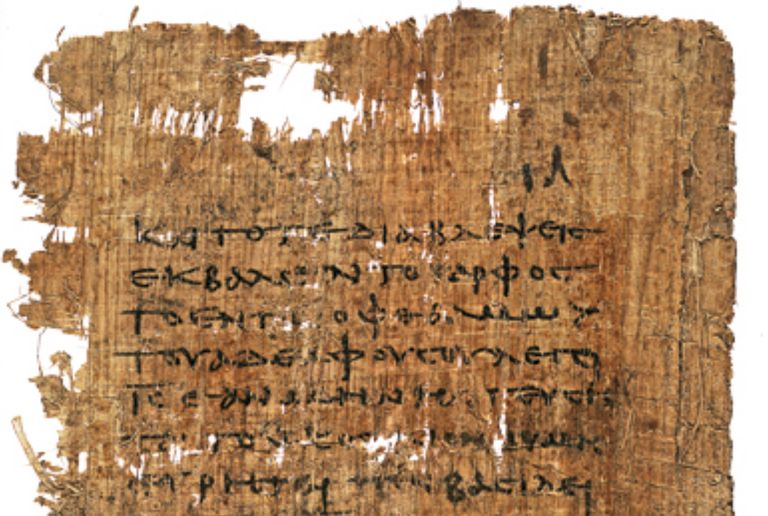 ΙΑ
ΚΑΙ ΤΟΤΕ ΔΙΑΒΛΕΨΕΙϹ
ΕΚΒΑΛΕΙΝ ΤΟ ΚΑΡΦΟϹ
ΤΟ ΕΝ ΤΩ ΟΦΘΑΛΜΩ
ΤΟΥ ΑΔΕΛΦΟΥ ϹΟΥ ΛΕΓΕΙ
ΙϹ ΕΑΝ ΜΗ ΝΗϹΤΕΥϹΗ
ΤΑΙ ΤΟΝ ΚΟϹΜΟΝ ΟΥ ΜΗ
ΕΥΡΗΤΑΙ ΤΗΝ ΒΑϹΙΛΕΙ